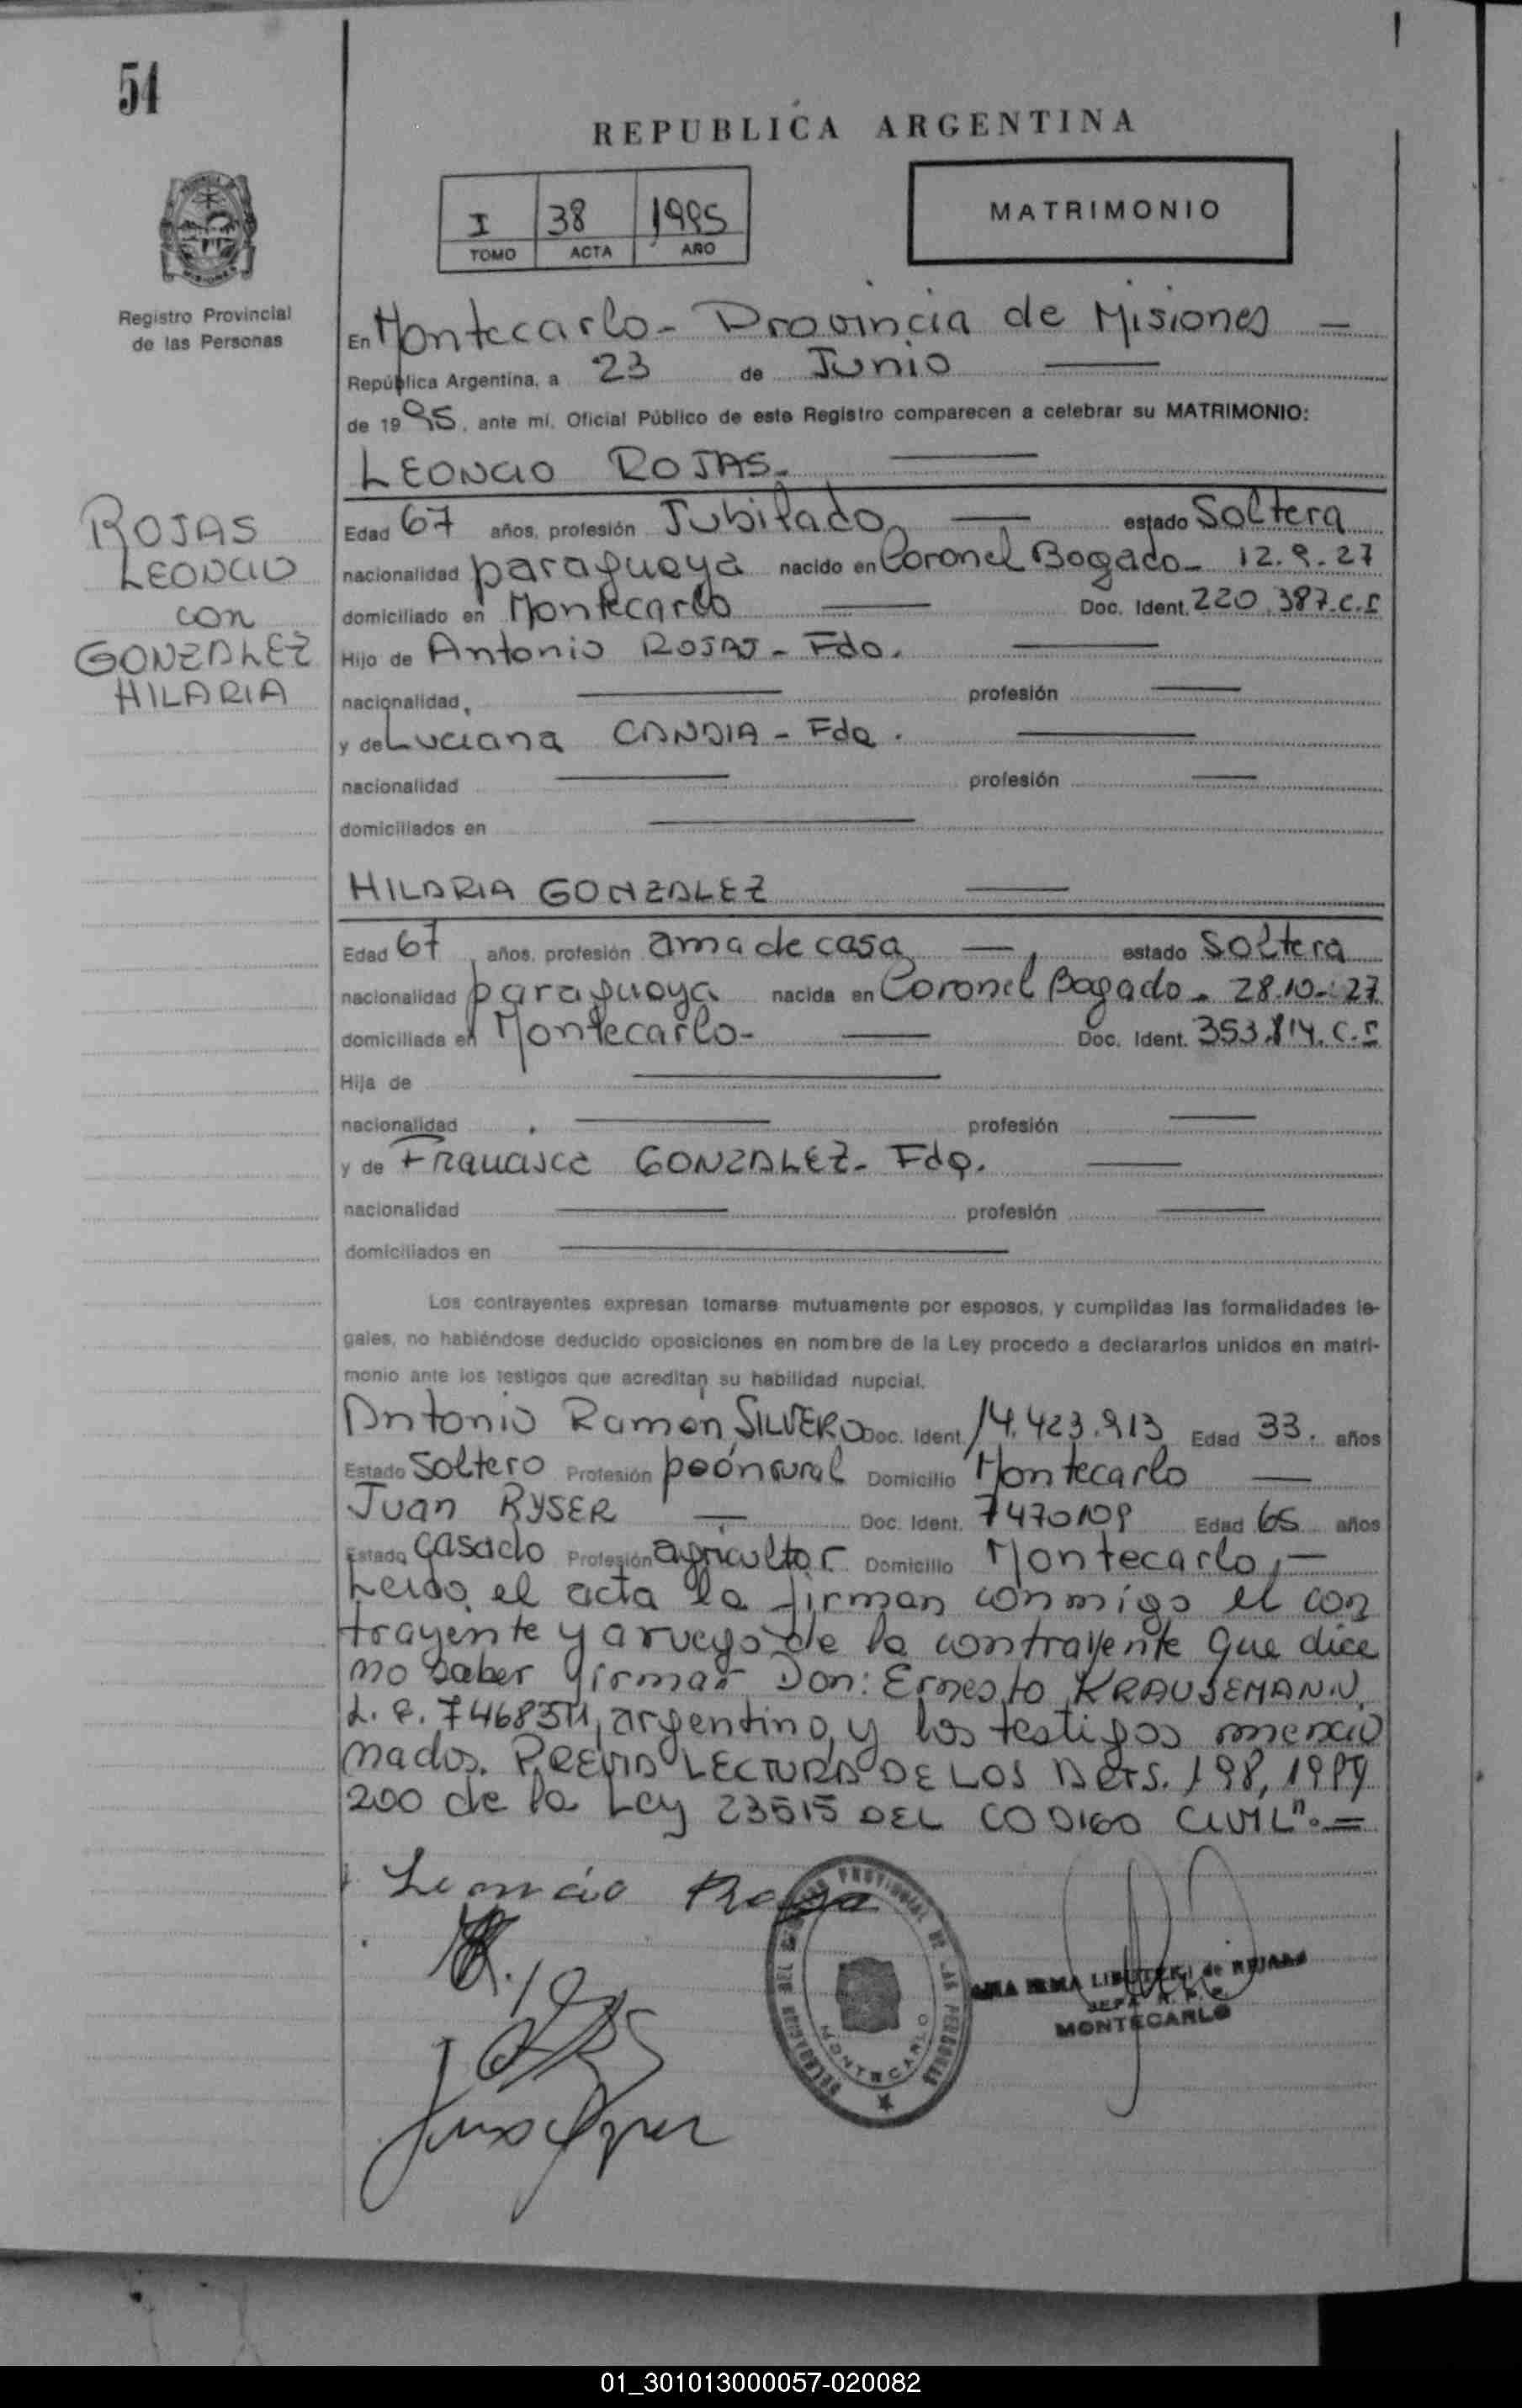 51
REPUBLICA ARGENTINA
I 38 1995
TOMO ACTA AÑO
MATRIMONIO
Registro Provincial
de las Personas
En Montecarlo - Provincia de Misiones —
República Argentina, a 23 de Junio —
de 1995, ante mí, Oficial Público de este Registro comparecen a celebrar su MATRIMONIO:
LEONCIO ROJAS. —
ROJAS
LEONCIO
con
GONZALEZ
HILARIA
Edad 67 años, profesión Jubilado — estado Soltera
nacionalidad paraguaya nacido en Coronel Bogado - 12.9.27
domiciliado en Montecarlo — Doc. Ident. 220.387.C.I
Hijo de Antonio ROJAS - Fdo. —
nacionalidad — profesión —
y de Luciana CANDIA - Fda. —
nacionalidad — profesión —
domiciliados en —
HILARIA GONZALEZ —
Edad 67 años, profesión ama de casa — estado Soltera
nacionalidad paraguaya nacida en Coronel Bogado - 28.10.27
domiciliada en Montecarlo - — Doc. Ident. 353.814.C.I
Hija de —
nacionalidad — profesión —
y de Francisca GONZALEZ - Fda. —
nacionalidad — profesión —
domiciliados en —
Los contrayentes expresan tomarse mutuamente por esposos, y cumplidas las formalidades le-
gales, no habiéndose deducido oposiciones en nombre de la Ley procedo a declararlos unidos en matri-
monio ante los testigos que acreditan su habilidad nupcial.
Antonio Ramón SILVERO Doc. Ident. 14.423.913 Edad 33. años
Estado Soltero Profesión peón rural Domicilio Montecarlo —
Juan RYSER — Doc. Ident. 7470109 Edad 65 años
Estado Casado Profesión agricultor Domicilio Montecarlo, —
Leida el acta la firman conmigo el con
trayente y a ruego de la contrayente que dice
no saber firmar Don: Ernesto KRAUSEMANN.
argentino, y los testigos mencio
nados. PREVIA LECTURA DE LOS Arts. 198, 199y
200 de la Ley 23515 DEL CODIGO CIVIL". =
Leoncio Rojas
MONTECARLO
JEFA R. P. P.
MONTECARLO
01_301013000057-020082